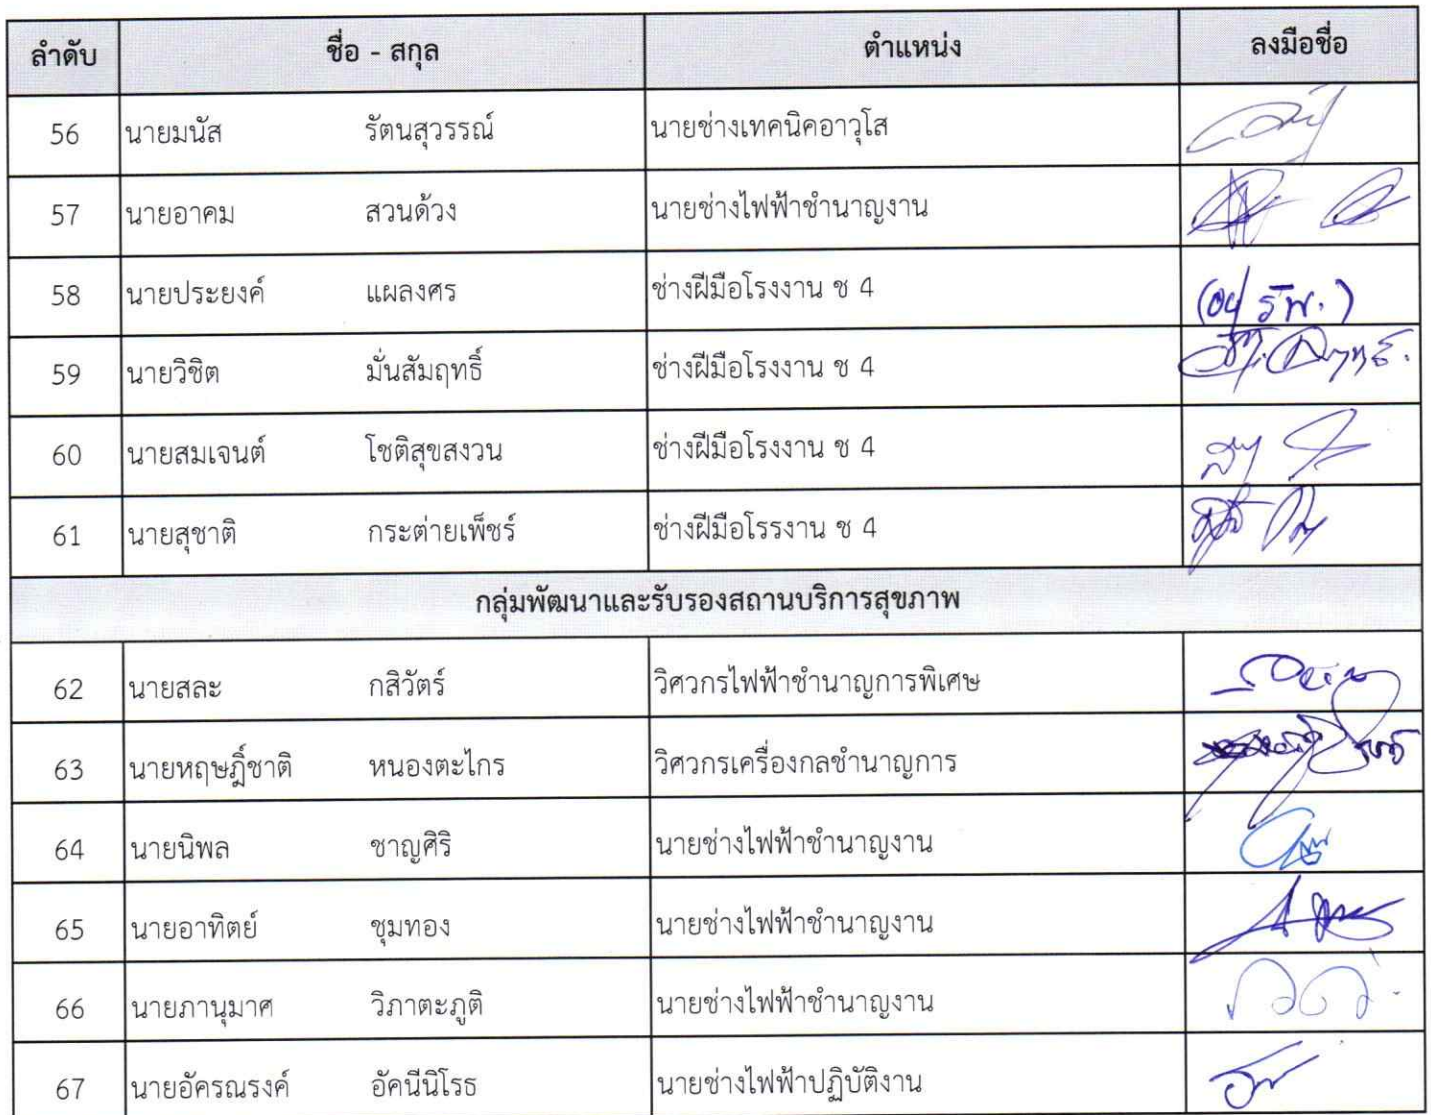 ลำดับ ชื่อ - สกุล ตำแหน่ง ลงมือชื่อ
56 นายมนัส รัตนสุวรรณ์ นายช่างเทคนิคอาวุโส
57 นายอาคม สวนด้วง นายช่างไฟฟ้าชำนาญงาน
58 นายประยงค์ แผลงศร ช่างฝีมือโรงงาน ช 4
59 นายวิชิต มั่นสัมฤทธิ์ ช่างฝีมือโรงงาน ช 4
60 นายสมเจนต์ โชติสุขสงวน ช่างฝีมือโรงงาน ช 4
61 นายสุชาติ กระต่ายเพ็ชร์ ช่างฝีมือโรรงาน ช 4
กลุ่มพัฒนาและรับรองสถานบริการสุขภาพ
62 นายสละ กสิวัตร์ วิศวกรไฟฟ้าชำนาญการพิเศษ
63 นายหฤษฎิ์ชาติ หนองตะไกร วิศวกรเครื่องกลชำนาญการ
64 นายนิพล ชาญศิริ นายช่างไฟฟ้าชำนาญงาน
65 นายอาทิตย์ ชุมทอง นายช่างไฟฟ้าชำนาญงาน
66 นายภานุมาศ วิภาตะภูติ นายช่างไฟฟ้าชำนาญงาน
67 นายอัครณรงค์ อัคนีนิโรธ นายช่างไฟฟ้าปฏิบัติงาน